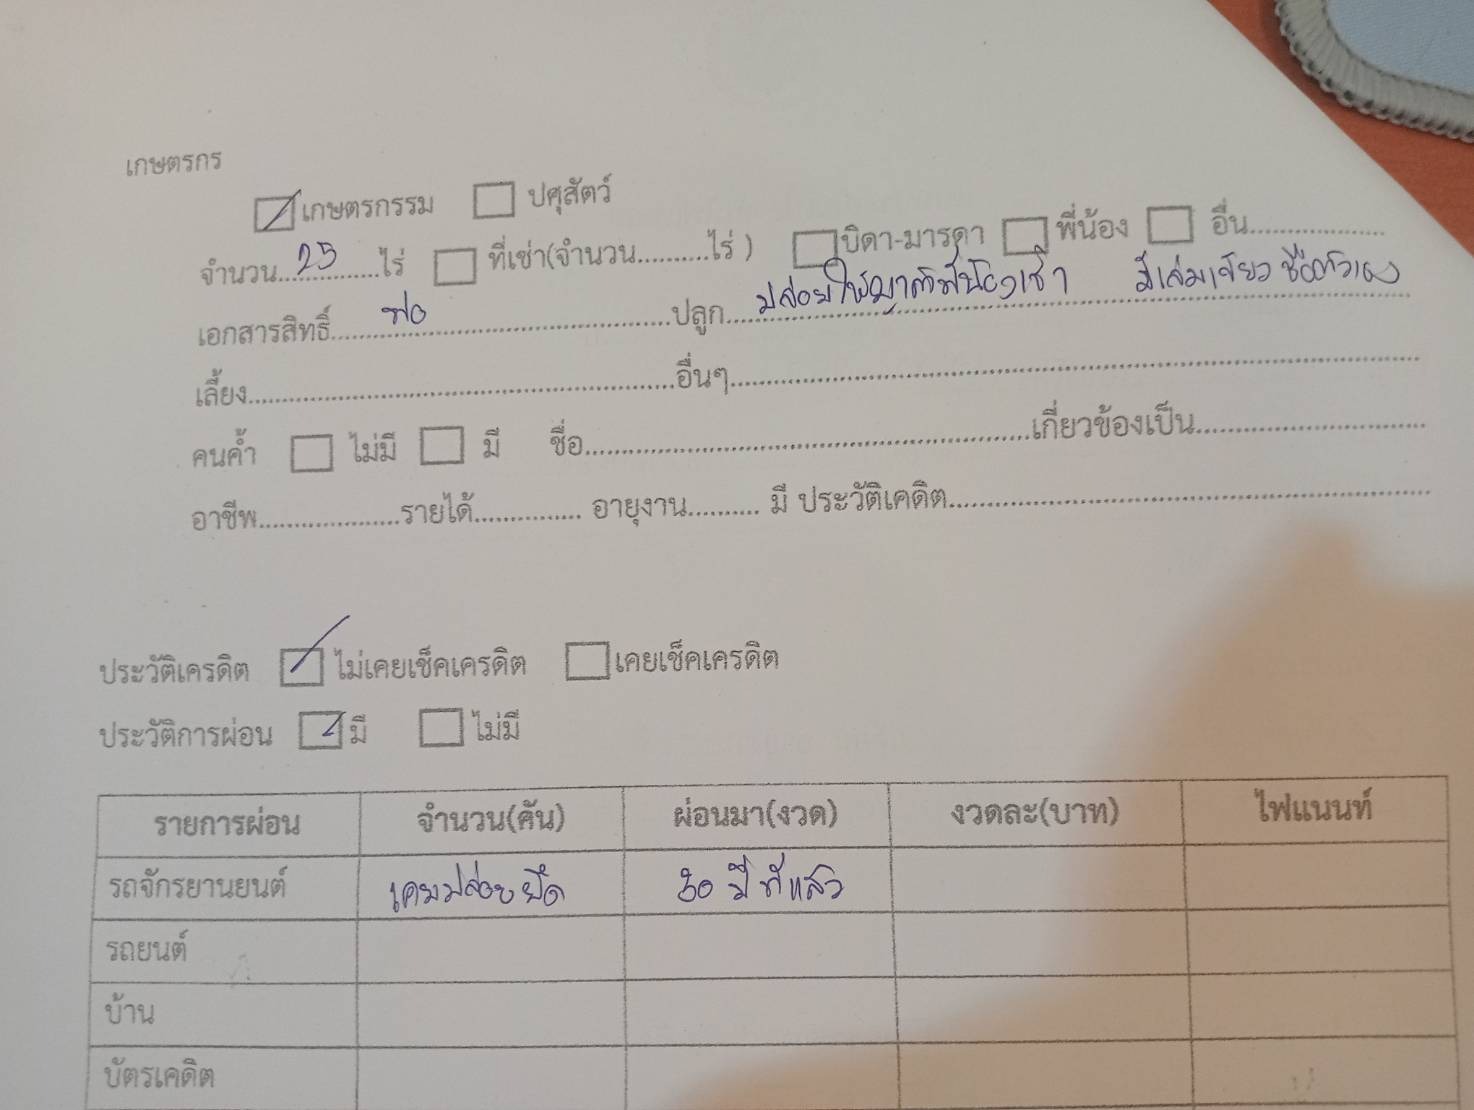 เกษตรกร
☑ เกษตรกรรม ☐ ปศุสัตว์
จำนวน...25...ไร่ ☐ ที่เช่า(จำนวน..........ไร่ ) ☐ บิดา-มารดา ☐ พี่น้อง ☐ อื่น..................
เอกสารสิทธิ์..........ปลูก...ปล่อยให้ญาติพี่น้องเช่า มีเล่มเขียว ชื่อตัวเอง
เลี้ยง..........อื่นๆ..........
คนค้ำ ☐ ไม่มี ☐ มี ชื่อ..........เกี่ยวข้องเป็น..........
อาชีพ..........รายได้.......... อายุงาน.......... มี ประวัติเคดิต..........
ประวัติเครดิต ☑ ไม่เคยเช็คเครดิต ☐ เคยเช็คเครดิต
ประวัติการผ่อน ☑ มี ☐ ไม่มี
รายการผ่อน จำนวน(คัน) ผ่อนมา(งวด) งวดละ(บาท) ไฟแนนท์
รถจักรยานยนต์ เคยปล่อยยึด 30 ปี ที่แล้ว
รถยนต์
บ้าน
บัตรเคดิต